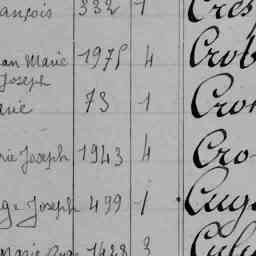 ançois 332 1 Cres
an Marie 1975 4 Crob
Joseph
arie 73 1 Cro
rie Joseph 1943 4 Cro
ge Joseph 499 1 Cug
Marie 1428 3 Cul